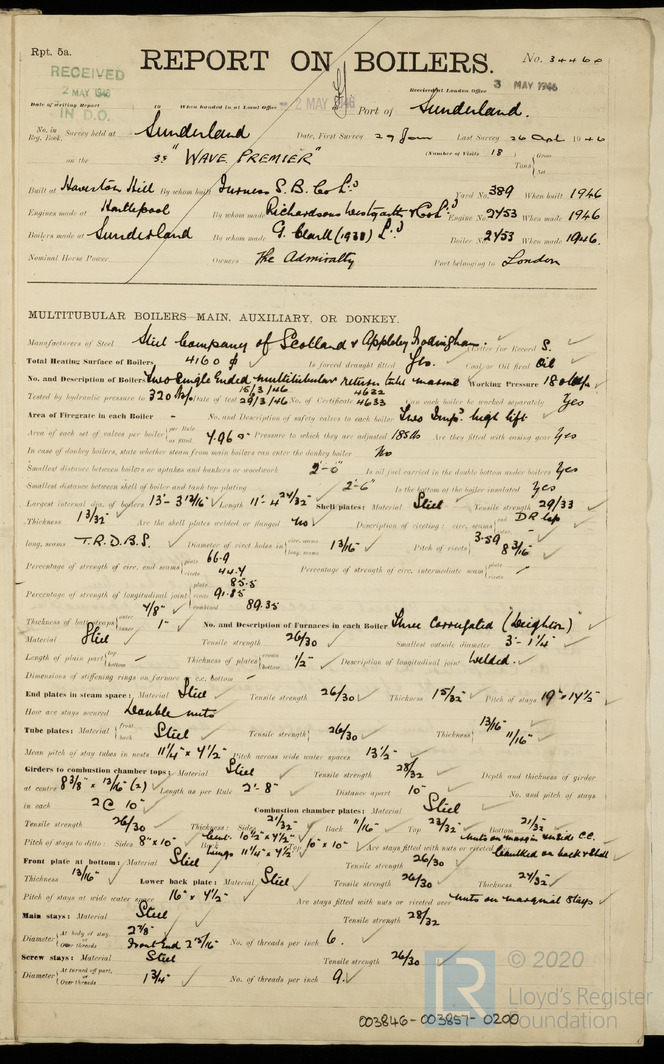 Rpt. 5a.
REPORT ON BOILERS.
No. 34460
RECEIVED
2 MAY 1946
IN D.O.
Received at London Office 3 MAY 1946
Date of writing Report 19 When handed in at Local Office 2 MAY 1946 Port of Sunderland.
No. in Reg. Book. Survey held at Sunderland Date, First Survey 29 Jan Last Survey 26 Apl 1946
on the SS "WAVE PREMIER" (Number of Visits 18) Tons Gross Net
Built at Haverton Hill By whom built Furness S.B. Co Ld Yard No. 389 When built 1946
Engines made at Hartlepool By whom made Richardsons Westgarth & Co Ld Engine No. 2453 When made 1946
Boilers made at Sunderland By whom made G. Clark (1938) Ld Boiler No. 2453 When made 1946.
Nominal Horse Power Owners The Admiralty Port belonging to London
MULTITUBULAR BOILERS—MAIN, AUXILIARY, OR DONKEY.
Manufacturers of Steel Steel Company of Scotland & Appleby Frodingham. Letter for Record S.
Total Heating Surface of Boilers 4160 Is forced draught fitted Yes. Coal or Oil fired Oil
No. and Description of Boilers Two single ended multitubular return tube marine Working Pressure 180
Tested by hydraulic pressure to 320 Date of test 15/3/46 29/3/46 No. of Certificate 4632 4633 Can each boiler be worked separately Yes
Area of Firegrate in each Boiler - No. and Description of safety valves to each boiler Two high lift
Area of each set of valves per boiler per Rule as fitted 7.96 Pressure to which they are adjusted 185 lb Are they fitted with easing gear Yes
In case of donkey boilers, state whether steam from main boilers can enter the donkey boiler No
Smallest distance between boilers or uptakes and bunkers or woodwork 2'-0" Is oil fuel carried in the double bottom under boilers Yes
Smallest distance between shell of boiler and tank top plating 2'-6" Is the bottom of the boiler insulated Yes
Largest internal dia. of boilers 13'-3 13/16" Length 11'-4 24/32" Shell plates: Material Steel Tensile strength 29/33
Thickness 1 3/32" Are the shell plates welded or flanged No Description of riveting: circ. seams end DR lap
long. seams T.R.D.B.S. Diameter of rivet holes in circ. seams long. seams 1 3/16" Pitch of rivets 3.59 8 3/16"
Percentage of strength of circ. end seams plate rivets 66.9 44.7 Percentage of strength of circ. intermediate seam plate rivets
Percentage of strength of longitudinal joint plate rivets combined 85.5 91.85 89.35
Thickness of butt straps outer inner 7/8" 1" No. and Description of Furnaces in each Boiler Three Corrugated (Deighton)
Material Steel Tensile strength 26/30 Smallest outside diameter 3'-1 1/4"
Length of plain part top bottom Thickness of plates crown bottom 1/2" Description of longitudinal joint Welded.
Dimensions of stiffening rings on furnace or c.c. bottom -
End plates in steam space: Material Steel Tensile strength 26/30 Thickness 15/32 Pitch of stays 19" x 14 1/2"
How are stays secured Double nuts
Tube plates: Material front back Steel Tensile strength 26/30 Thickness 13/16" 11/16"
Mean pitch of stay tubes in nests 11 1/4" x 7 1/2" Pitch across wide water spaces 13 1/2"
Girders to combustion chamber tops: Material Steel Tensile strength 28/32 Depth and thickness of girder
at centre 8 3/8" x 13/16" (2) Length as per Rule 2'-8" Distance apart 10" No. and pitch of stays
in each 2 @ 10" Combustion chamber plates: Material Steel
Tensile strength 26/30 Thickness: Sides 21/32" Back 11/16" Top 23/32" Bottom 21/32"
Pitch of stays to ditto: Sides 8" x 10" Back Cent. 10 1/2" x 9 1/2" Wings 11 1/4" x 9 1/2" Top 10" x 10" Are stays fitted with nuts or riveted over nuts on margin inside C.C. caulked on back & shell
Front plate at bottom: Material Steel Tensile strength 26/30
Thickness 13/16" Lower back plate: Material Steel Tensile strength 26/30 Thickness 24/32"
Pitch of stays at wide water space 16" x 9 1/2" Are stays fitted with nuts or riveted over nuts on marginal stays
Main stays: Material Steel Tensile strength 28/32
Diameter At body of stay, or Over threads 2 7/8" Front End No. of threads per inch 6.
Screw stays: Material Steel Tensile strength 26/30
Diameter At turned off part, or Over threads 1 3/4" No. of threads per inch 9.
© 2020
Lloyd's Register
Foundation
003846-003857-0200